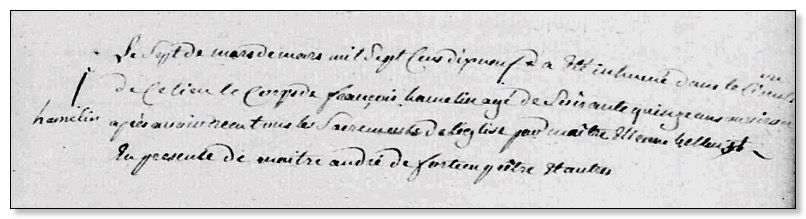 Le Sept de mars de mars mil Sept Cens dix neuf a Eté inhumé dans le Cimetiere
de Ce lieu le Corps de françois hamelin agé de Soixante quinze ans environ
hamelin
apres avoir receu tous les Sacrements de l'eglise par maitre Etienne
En presence de maitre andré de fortem prêtre Et autres